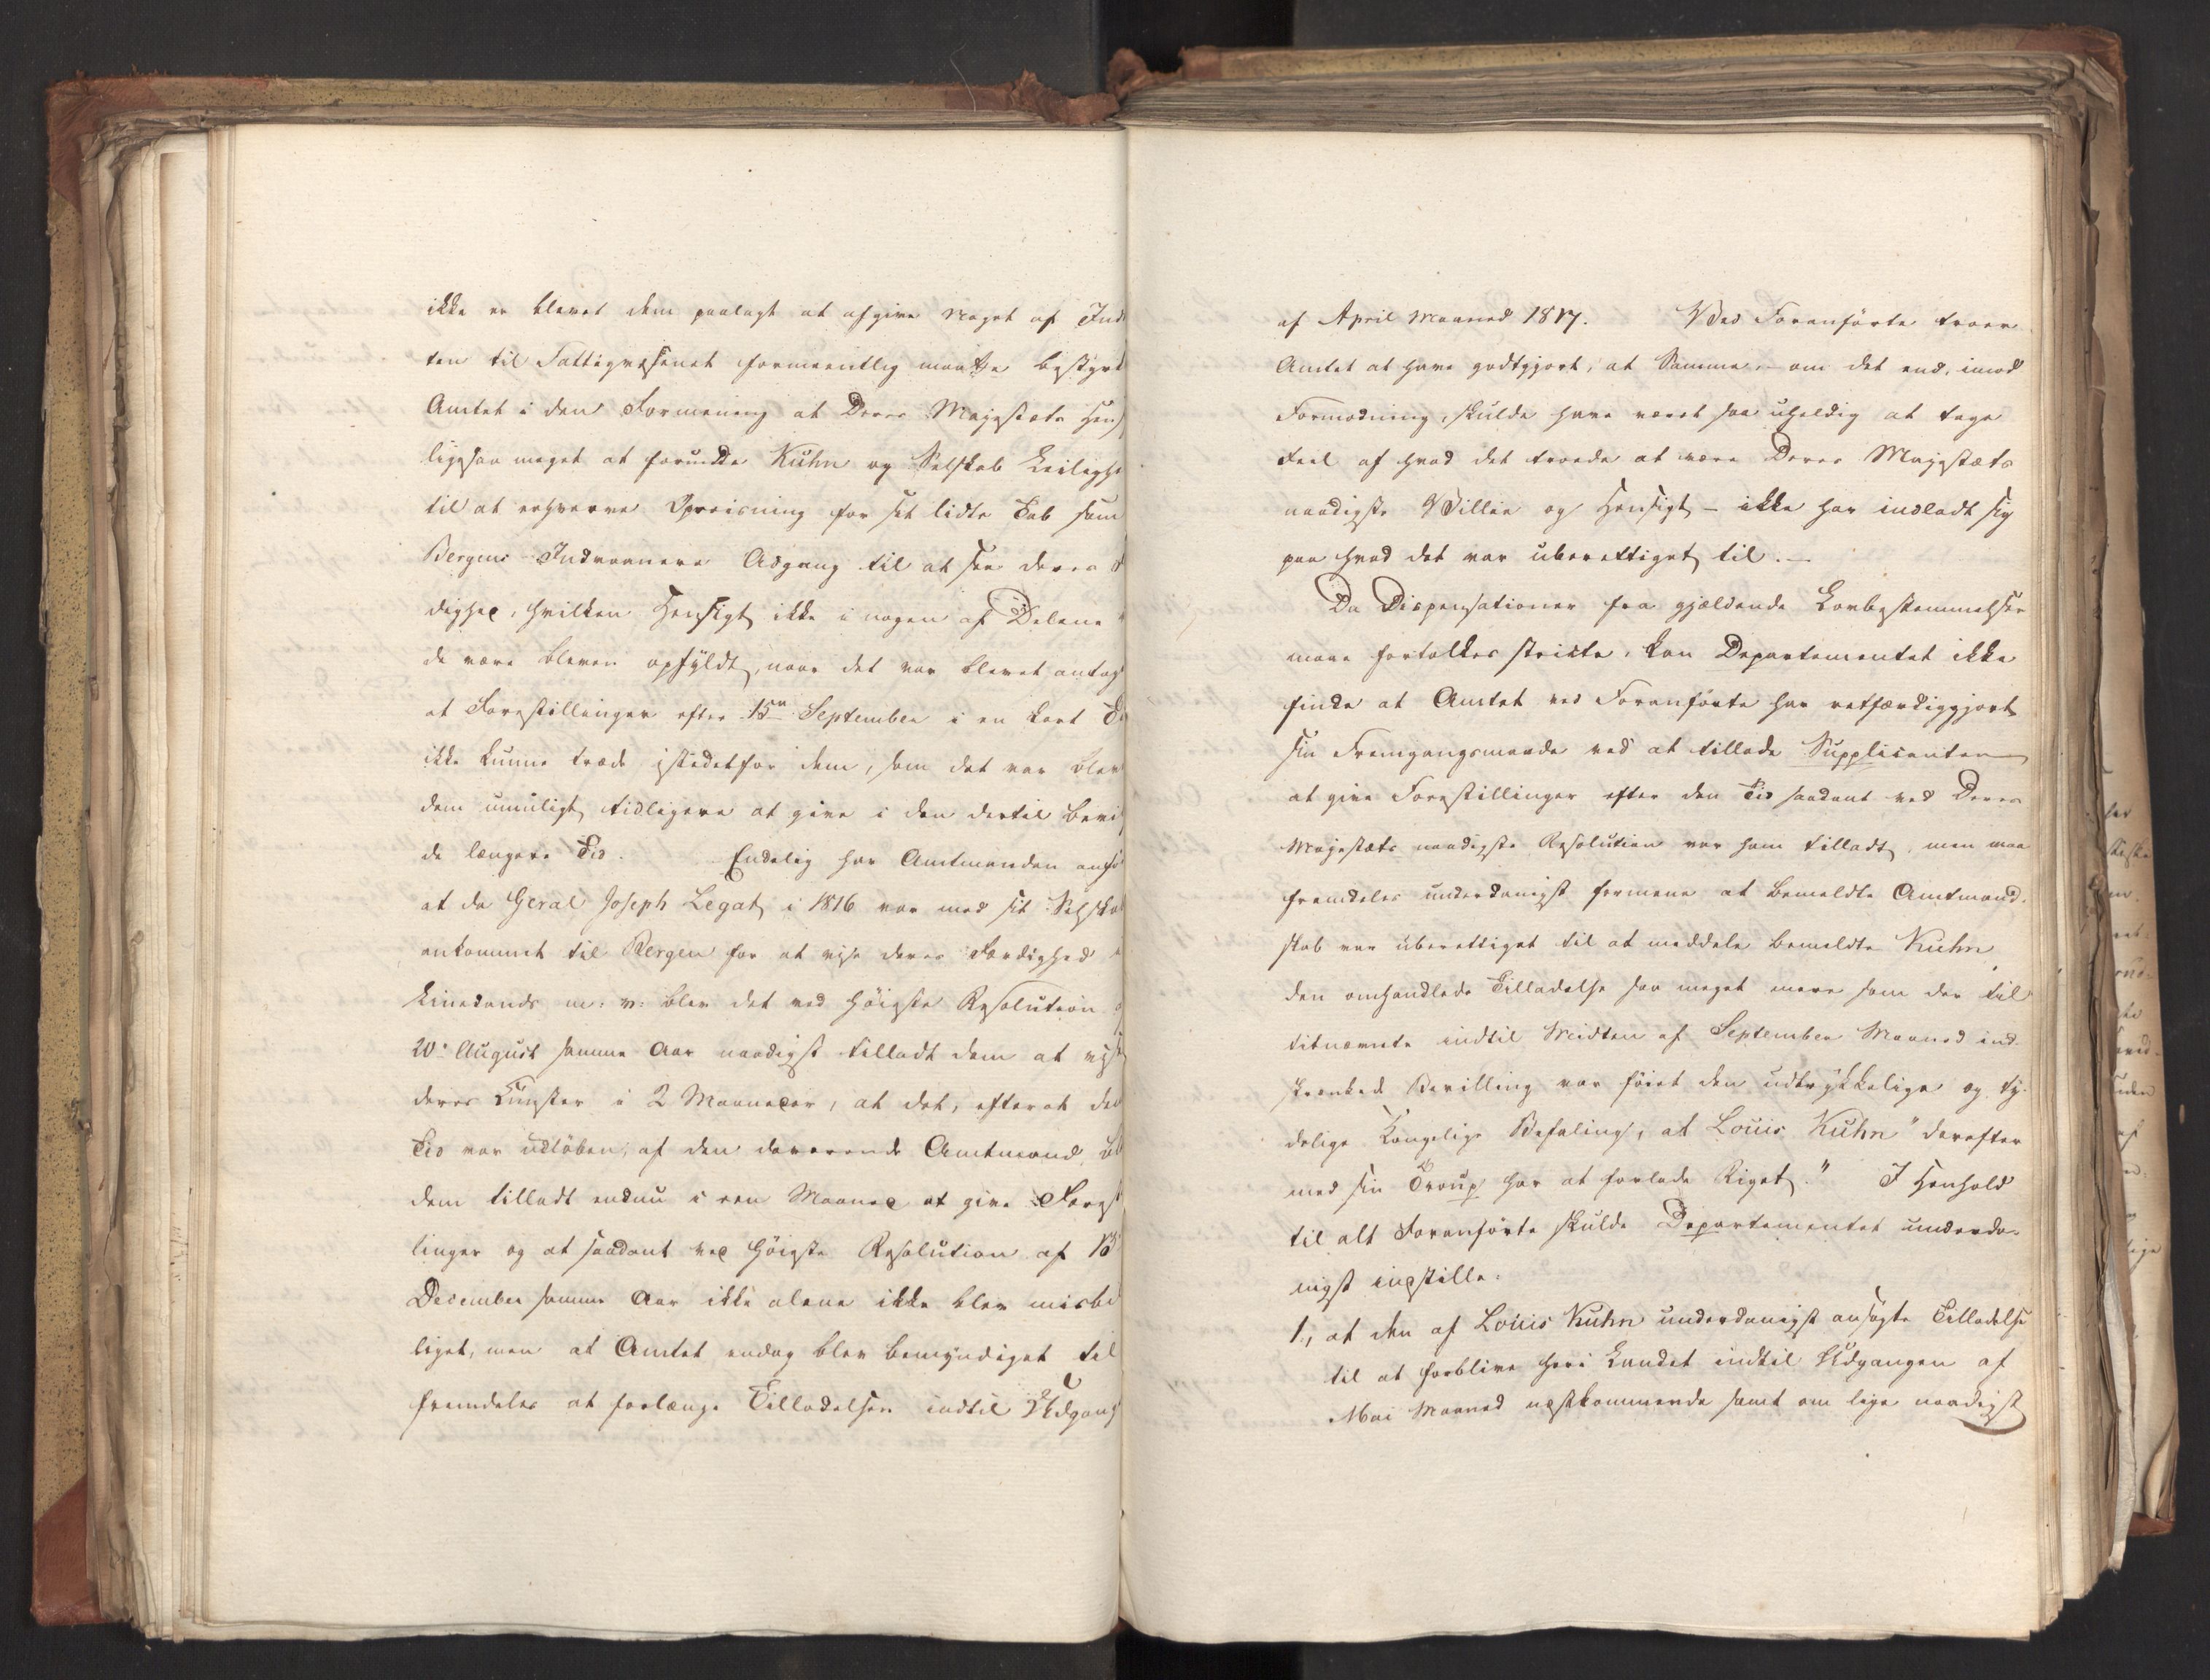 ikke er blevet dem paalagt at afgive Noget af Ind
ten til Fattigvæsenet formeentlig maatte bestyrk
Amtet i den Formening at Deres Majestæts Hens
ligesaa meget at forunde Kuhn og Selskab Leilighe
til at erhverve Opreisning for sit lidte Tab som
Bergens Indvaanere Adgang til at see deres
dighed, hvilken Hensigt ikke i nogen af Delene
de være bleven opfyldt, naar det var blevet antag
at Forestillinger efter 15en September i en kort
ikke kunne træde istedetfor dem, som det var blev
dem umuligt tidligere at give i den dertil bevil
de længere Tid. Endelig har Amtmanden anfö
at da Geral Joseph Legat i 1816 var med sit Selskab
ankommet til Bergen for at vise deres Færdighed
Linedands m: v: blev det ved höieste Resolution
20. August samme Aar naadigst tilladt dem at vise
deres Kunster i 2 Maaneder, at det, efterat den
Tid var udlöben, af den daværende Amtmand, bl
dem tilladt endnu i een Maaned at give Forest
linger og at saadant ved Höieste Resolution af 16
December samme Aar ikke alene ikke blev misbi
liget, men at Amtet endog blev bemyndiget til
fremdeles at forlænge Tilladelsen indtil Udgang
af April Maaned 1817. Ved Foranförte troer
Amtet at have godtgjort, at Samme, – om det end, imod
Formodning, skulde have været saa uheldig at tage
Feil af hvad det troede at være Deres Majestæts
naadigste Villie og Hensigt – ikke har indladt sig
paa hvad det var uberettiget til. –
Da Dispensationer fra gjældende Lovbestemmelser
maae fortolkes stricte, kan Departementet ikke
finde at Amtet ved Foranförte har retfærdiggjort
sin Fremgangsmaade ved at tillade Supplicanten
at give Forestillinger efter den Tid saadant ved Deres
Majestæts naadigste Resolution var ham tilladt, men maa
fremdeles underdanigst formene at bemeldte Amtmand-
skab var uberettiget til at meddele bemeldte Kuhn
den omhandlede Tilladelse saa meget mere som der til
titnævnte indtil Midten af September Maaned ind-
skrænkede Bevilling var föiet den udtrykkelige og ty-
delige Kongelige Befaling, at Louis Kuhn "derefter
med sin Troup har at forlade Riget." I Henhold
til alt Foranförte skulde Departementet underda-
nigst indstille:
1., at den af Louis Kuhn underdanigst ansögte Tilladelse
til at forblive her i Landet indtil Udgangen af
Mai Maaned næstkommende samt om lige naadigst